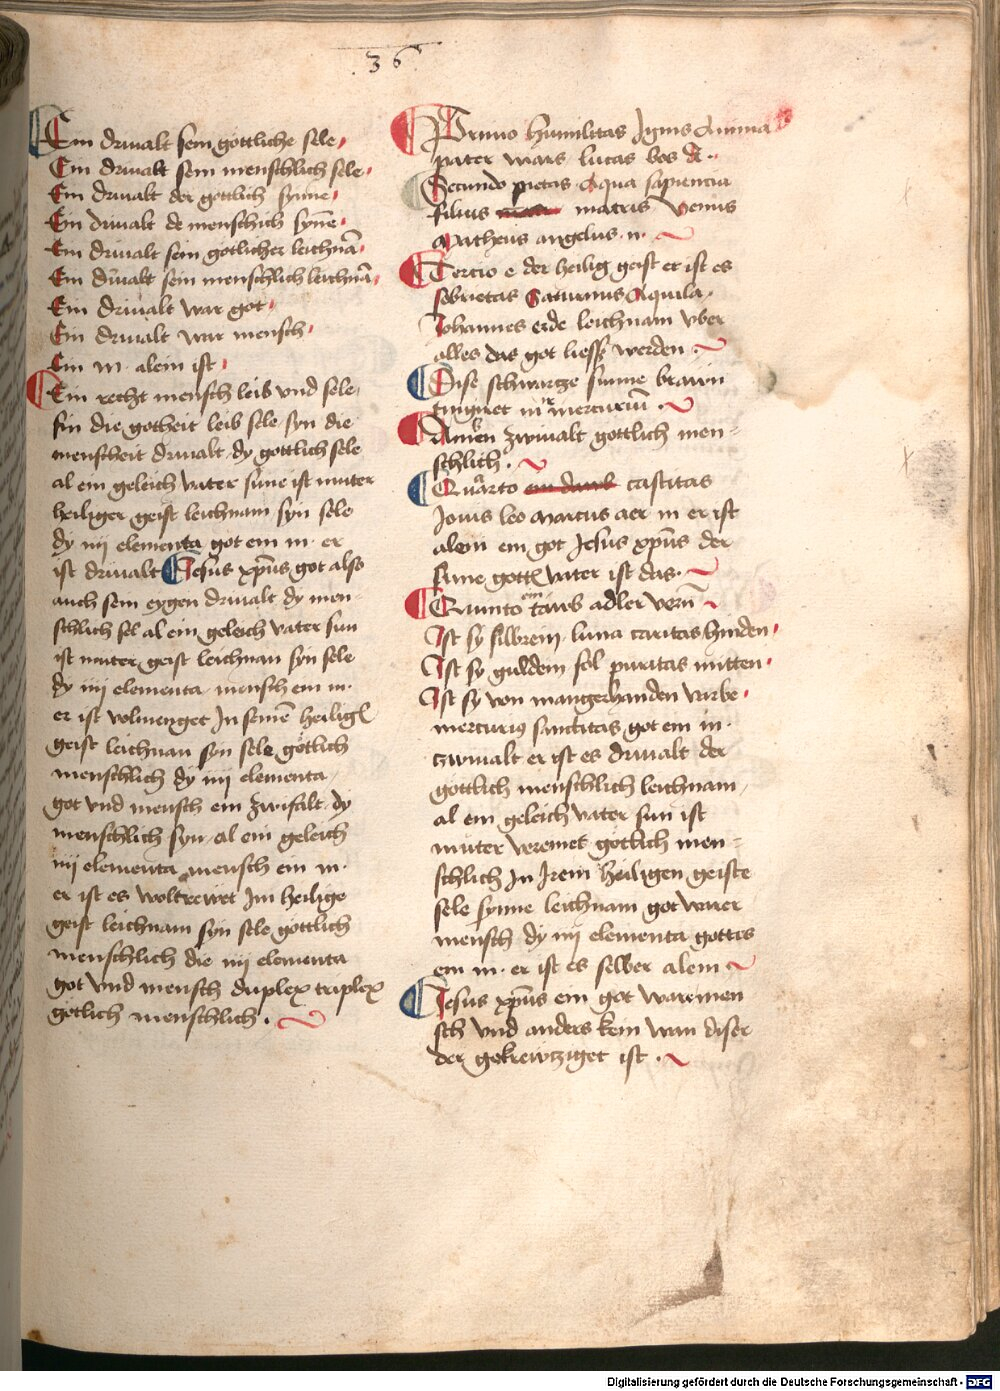 36
Ein drivalt sein gottliche sele
Ein drivalt sein menschlich sele
Ein drivalt der gottlich synne
Ein drivalt de menschich syn̄e
Ein drivalt sein gotlicher leichnā
Ein drivalt sein menschlich leichnā
Ein drivalt war got
Ein drivalt war mensch
Ein m. alein ist
Ein recht mensch leib vnd sele
sin die gotheit leib sele syn die
menscheit drivalt dy gottlich sele
al ein geleich vater sune ist muter
heiliger geist leichnam syn sele
dy iiij elementa got ein m. er
ist drivalt Jesus xp̄us got also
auch sein eygen drivalt dy men
schlich sel al ein geleich vater sun
ist muter geist leichnam syn sele
dy iiij elementa mensch ein m.
er ist volmenget In seinē heiligē
geist leichnam syn sele götlich
menschlich dy iiij elementa
got vnd mensch ein zwifalt dy
menschlich syn al ein geleich
iiij elementa mensch ein m.
er ist es Im heilige
geist leichnam syn sele göttlich
menschlich die iiij elementa
got vnd mensch duplex triplex
götlich menschlich.
Primo humilitas Ignis Anima
pater mars lucas bos
Secundo pietas Aqua sapiencia
filius matris venus
Matheus angelus. n.
Tercio e der heilig geist er ist es
sobrietas Saturnus Aquila
Johannes erde leichnam vber
alles das got liess werden.
Dise schwartze sunne brawn
tinguret mercuriū.
Amen zwivalt gottlich men=
schlich.
Quarto ein castitas
Jouis leo Marcus aer m er ist
alein ein got Jesus xp̄us der
sune gotts vater ist das.
Quinto ein adler
Ist sy silbrein luna caritas hinden
Ist sy guldein sol puritas mitten
Ist sy von mangerhanden varbe
mercurius sanctitas got ein m.
zwivalt er ist es drivalt der
göttlich menschlich leichnam
al ein geleich vater sun ist
muter vereinet gotlich men=
schlich In Irem heiligen geiste
sele synne leichnam got warer
mensch dy iiij elementa gottes
ein m. er ist es selber alein
Jesus xp̄us ein got ware men
sch vnd anders kein wan diser
der gekrewtziget ist.
Digitalisierung gefördert durch die Deutsche Forschungsgemeinschaft - DFG